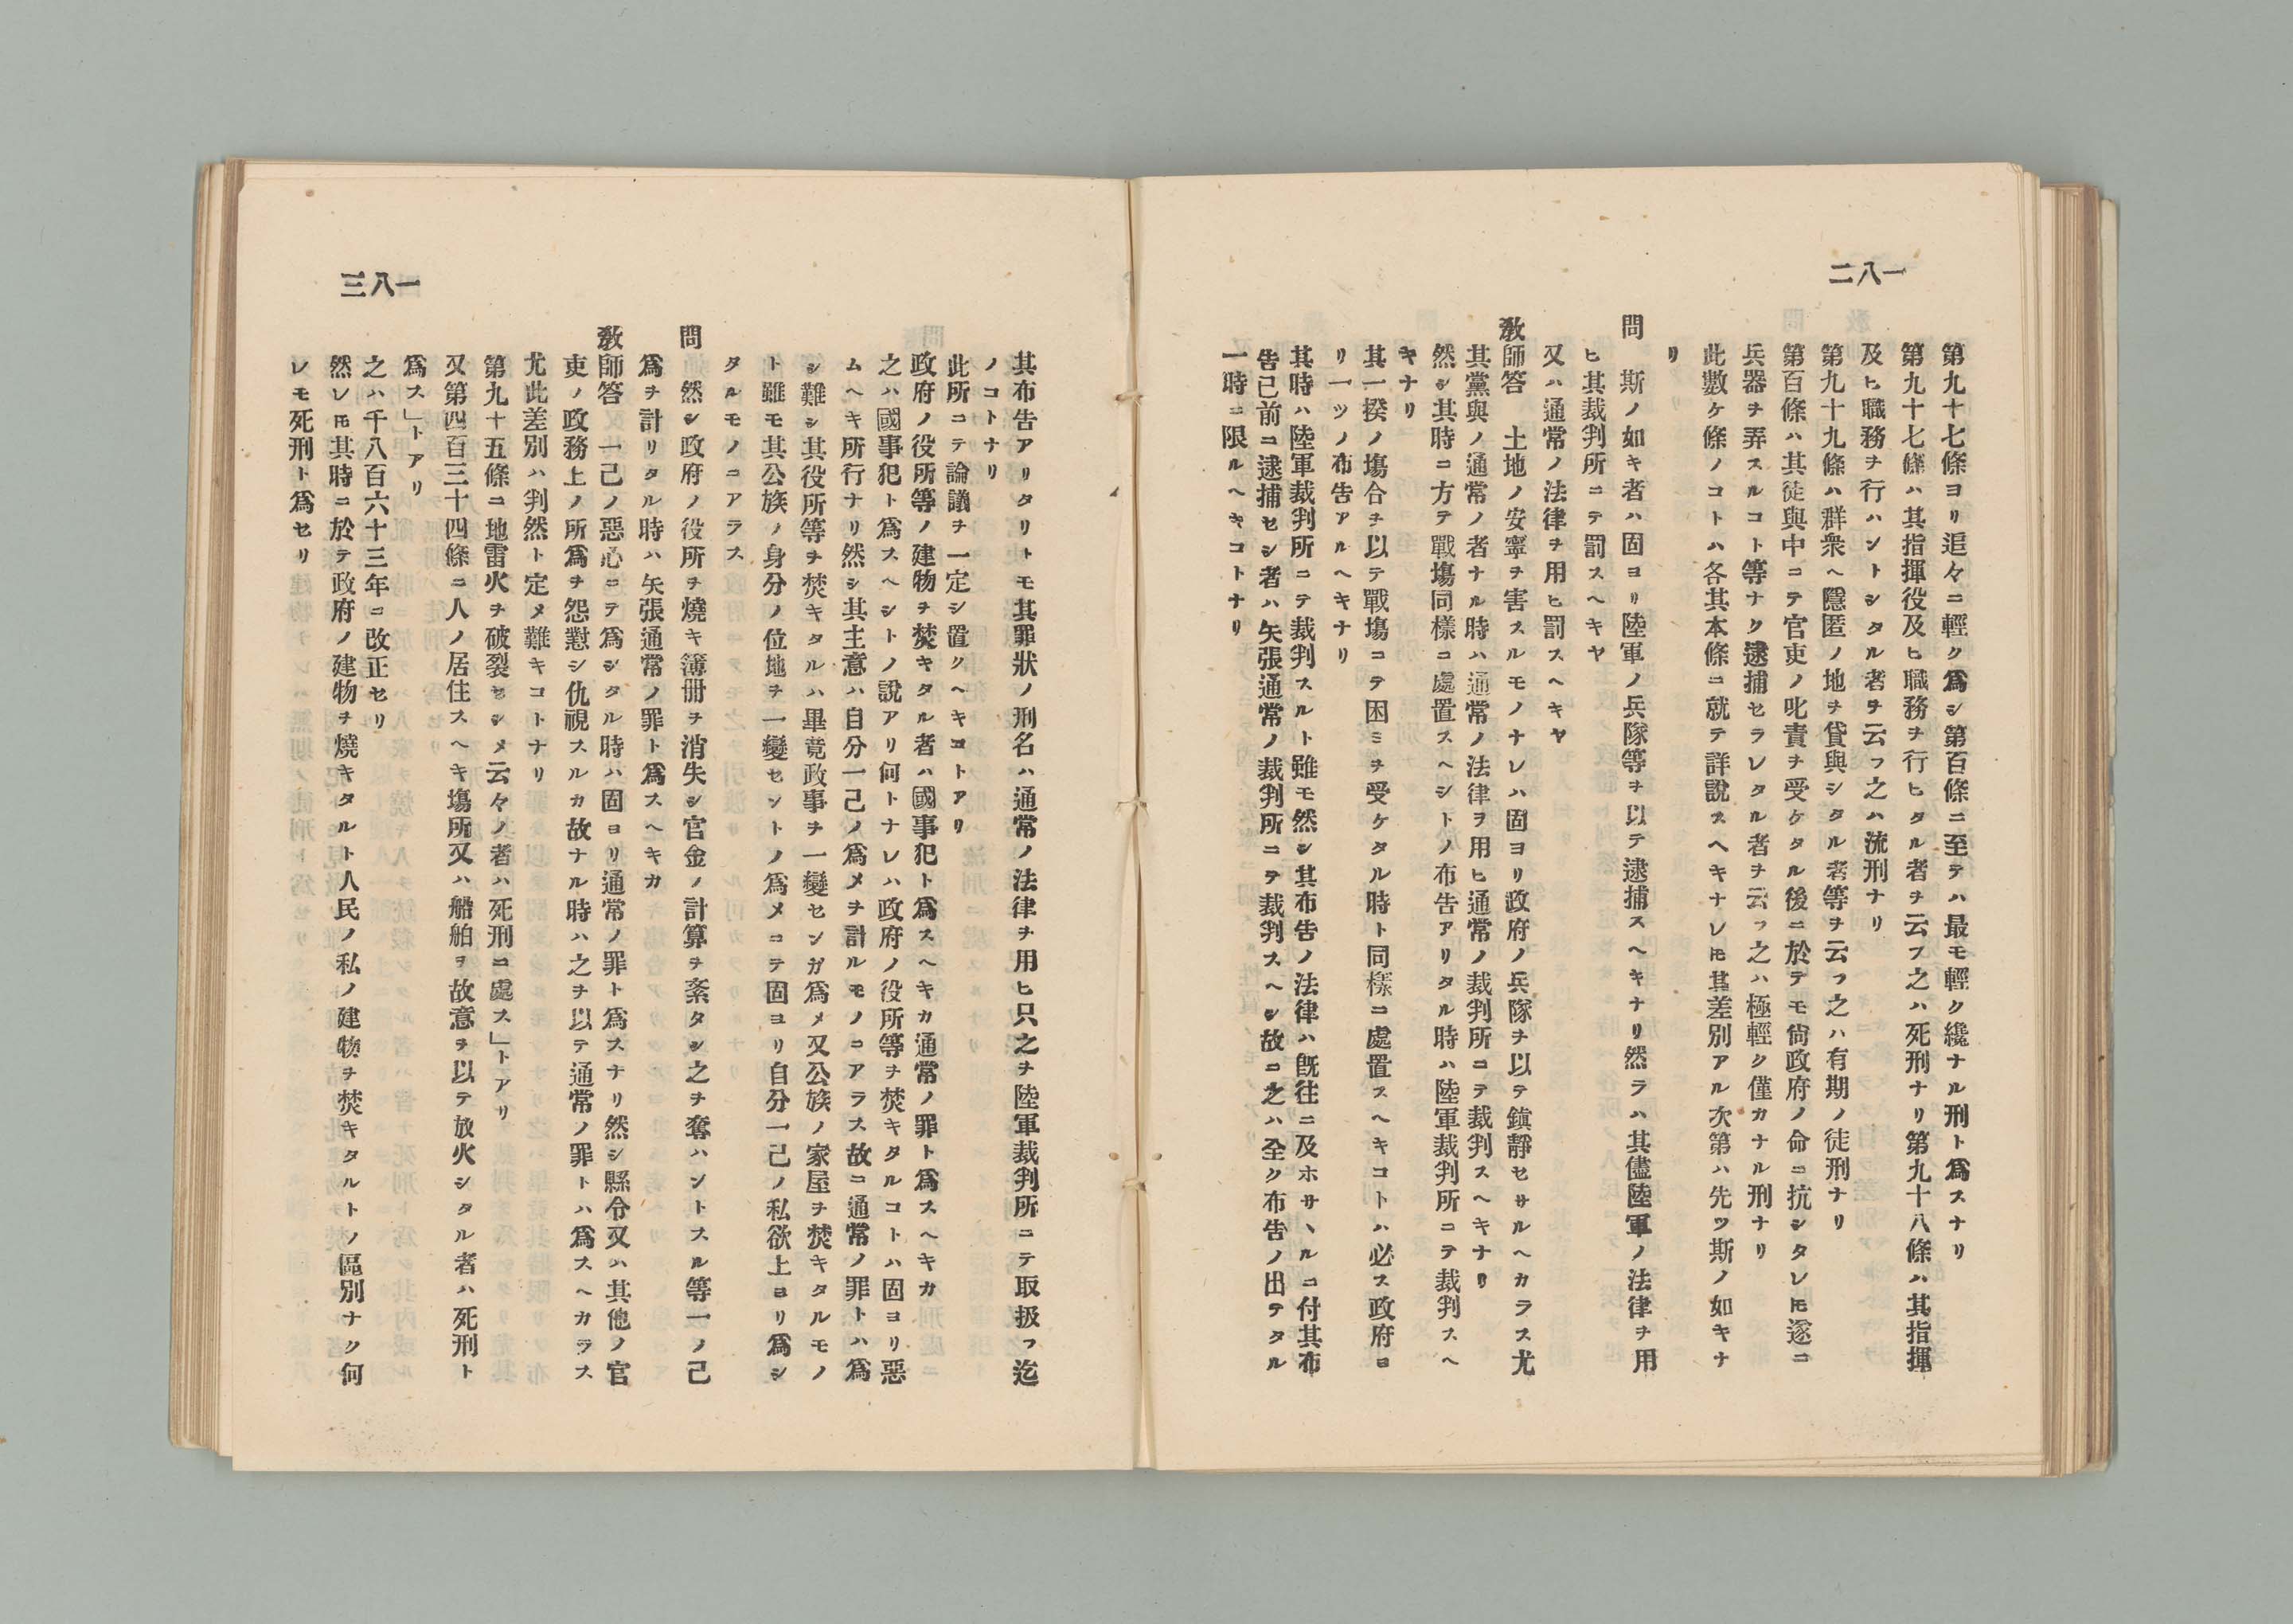 一八二
第九十七條ヨリ追々ニ輕ク爲シ第百條ニ至テハ最モ輕ク纔ナル刑ト爲スナリ
第九十七條ハ其指揮役及ヒ職務ヲ行ヒタル者ヲ云フ之ハ死刑ナリ第九十八條ハ其指揮
及ヒ職務ヲ行ハントシタル者ヲ云フ之ハ流刑ナリ
第九十九條ハ群衆ヘ隱匿ノ地ヲ貸與シタル者等ヲ云フ之ハ有期ノ徒刑ナリ
第百條ハ其徒與中ニテ官吏ノ叱責ヲ受ケタル後ニ於テモ尙政府ノ命ニ抗シタレ𪜈遂ニ
兵器ヲ弄スルコト等ナク逮捕セラレタル者ヲ云フ之ハ極輕ク僅カナル刑ナリ
此數ケ條ノコトハ各其本條ニ就テ詳說スヘキナレ𪜈其差別アル次第ハ先ツ斯ノ如キナ
リ
問　斯ノ如キ者ハ固ヨリ陸軍ノ兵隊等ヲ以テ逮捕スヘキナリ然ラハ其儘陸軍ノ法律ヲ用
ヒ其裁判所ニテ罰スヘキヤ
又ハ通常ノ法律ヲ用ヒ罰スヘキヤ
敎師答　土地ノ安寧ヲ害スルモノナレハ固ヨリ政府ノ兵隊ヲ以テ鎭靜セサルヘカラス尤
其黨與ノ通常ノ者ナル時ハ通常ノ法律ヲ用ヒ通常ノ裁判所ニテ裁判スヘキナリ
然シ其時ニ方テ戰塲同樣ニ處置スヘシトノ布告アリタル時ハ陸軍裁判所ニテ裁判スヘ
キナリ
其一揆ノ塲合ヲ以テ戰塲ニテ困ミヲ受ケタル時ト同樣ニ處置スヘキコトハ必ス政府ヨ
リ一ツノ布告アルヘキナリ
其時ハ陸軍裁判所ニテ裁判スルト雖モ然シ其布告ノ法律ハ旣往ニ及ホサヽルニ付其布
告已前ニ逮捕セシ者ハ矢張通常ノ裁判所ニテ裁判スヘシ故ニ之ハ全ク布告ノ出テタル
一時ニ限ルヘキコトナリ
一八三
其布告アリタリトモ其罪狀ノ刑名ハ通常ノ法律ヲ用ヒ只之ヲ陸軍裁判所ニテ取扱フ迄
ノコトナリ
此所ニテ論議ヲ一定シ置クヘキコトアリ
政府ノ役所等ノ建物ヲ焚キタル者ハ國事犯ト爲スヘキカ通常ノ罪ト爲スヘキカ
之ハ國事犯ト爲スヘシトノ說アリ何トナレハ政府ノ役所等ヲ焚キタルコトハ固ヨリ惡
ムヘキ所行ナリ然シ其主意ハ自分一己ノ爲メヲ計ルモノニアラス故ニ通常ノ罪トハ爲
シ難シ其役所等ヲ焚キタルハ畢竟政事ヲ一變センガ爲メ又公族ノ家屋ヲ焚キタルモノ
ト雖モ其公族ノ身分ノ位地ヲ一變セントノ爲メニテ固ヨリ自分一己ノ私欲上ヨリ爲シ
タルモノニアラス
問　然シ政府ノ役所ヲ燒キ簿冊ヲ消失シ官金ノ計算ヲ紊タシ之ヲ奪ハントスル等一ノ己
爲ヲ計リタル時ハ矢張通常ノ罪ト爲スヘキカ
敎師答　一己ノ惡心ニテ爲シタル時ハ固ヨリ通常ノ罪ト爲スナリ然シ縣令又ハ其他ノ官
吏ノ政務上ノ所爲ヲ怨懟シ仇視スルカ故ナル時ハ之ヲ以テ通常ノ罪トハ爲スヘカラス
尤此差別ハ判然ト定メ難キコトナリ
第九十五條ニ地雷火ヲ破裂セシメ云々ノ者ハ死刑ニ處ス」トアリ
又第四百三十四條ニ人ノ居住スヘキ塲所又ハ船舶ヲ故意ヲ以テ放火シタル者ハ死刑ト
爲ス」トアリ
之ハ千八百六十三年ニ改正セリ
然レ𪜈其時ニ於テ政府ノ建物ヲ燒キタルト人民ノ私ノ建物ヲ焚キタルトノ區別ナク何
レモ死刑ト爲セリ